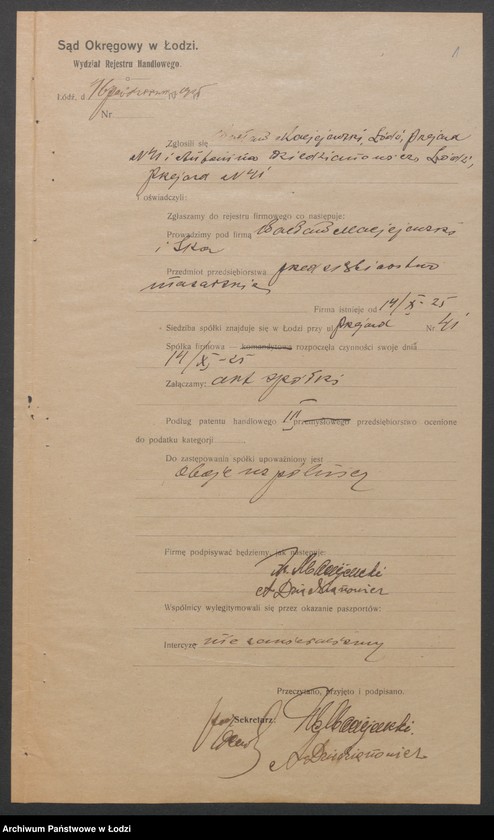 Sąd Okręgowy w Łodzi.
Wydział Rejestru Handlowego.
Łódź, d
Nr
Zgłosili się Wacław Maciejewski, Łódź, Przejazd
№ 41 i Antonina Dziedzianowicz, Łódź,
Przejazd № 41
i oświadczyli:
Zgłaszamy do rejestru firmowego co następuje:
Prowadzimy pod firmą Wacław Maciejewski
i Ska
Przedmiot przedsiębiorstwa przedsiębiorstwo
masarskie
Firma istnieje od 14/XI-25
Siedziba spółki znajduje się w Łodzi przy ul Przejazd Nr 41
Spółka firmowa — komandytowa rozpoczęła czynności swoje dnia
14/XI-25
Załączamy: akt spółki
Podług patentu handlowego III przemysłowego przedsiębiorstwo ocenione
do podatku kategorji
Do zastępowania spółki upoważniony jest
oboje wspólnicy
Firmę podpisywać będziemy, jak następuje:
W. Maciejewski
A. Dziedzianowicz
Wspólnicy wylegitymowali się przez okazanie paszportów:
Intercyzę nie zawieraliśmy
Przeczytano, przyjęto i podpisano.
Sekretarz: W. Maciejewski.
A. Dziedzianowicz
Archiwum Państwowe w Łodzi